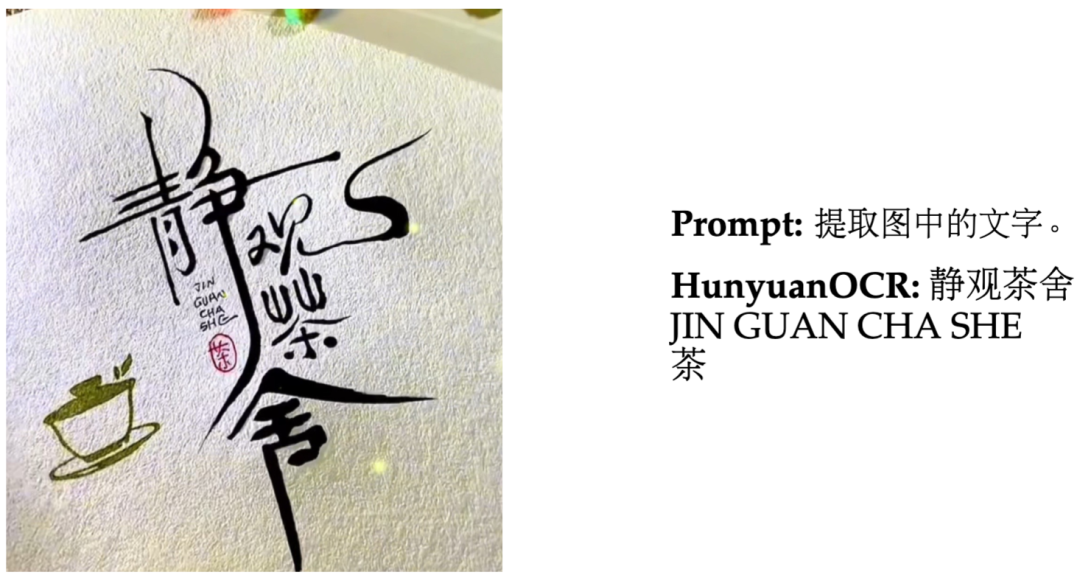 静观茶舍
JIN
GUAN
CHA
SHE
茶
Prompt: 提取图中的文字。
HunyuanOCR: 静观茶舍
JIN GUAN CHA SHE
茶